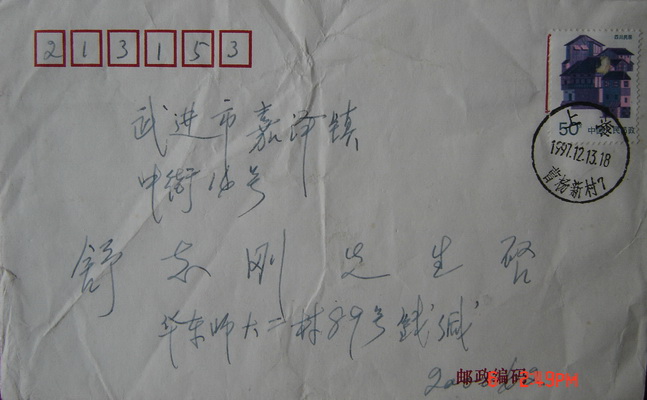 213153
四川民居
50 中国人民邮政
上海
1997.12.13.18
曹杨新村7
武进市嘉泽镇
中街16号
舒刚先生启
华东师大二村89号钱缄
邮政编码
2:49PM